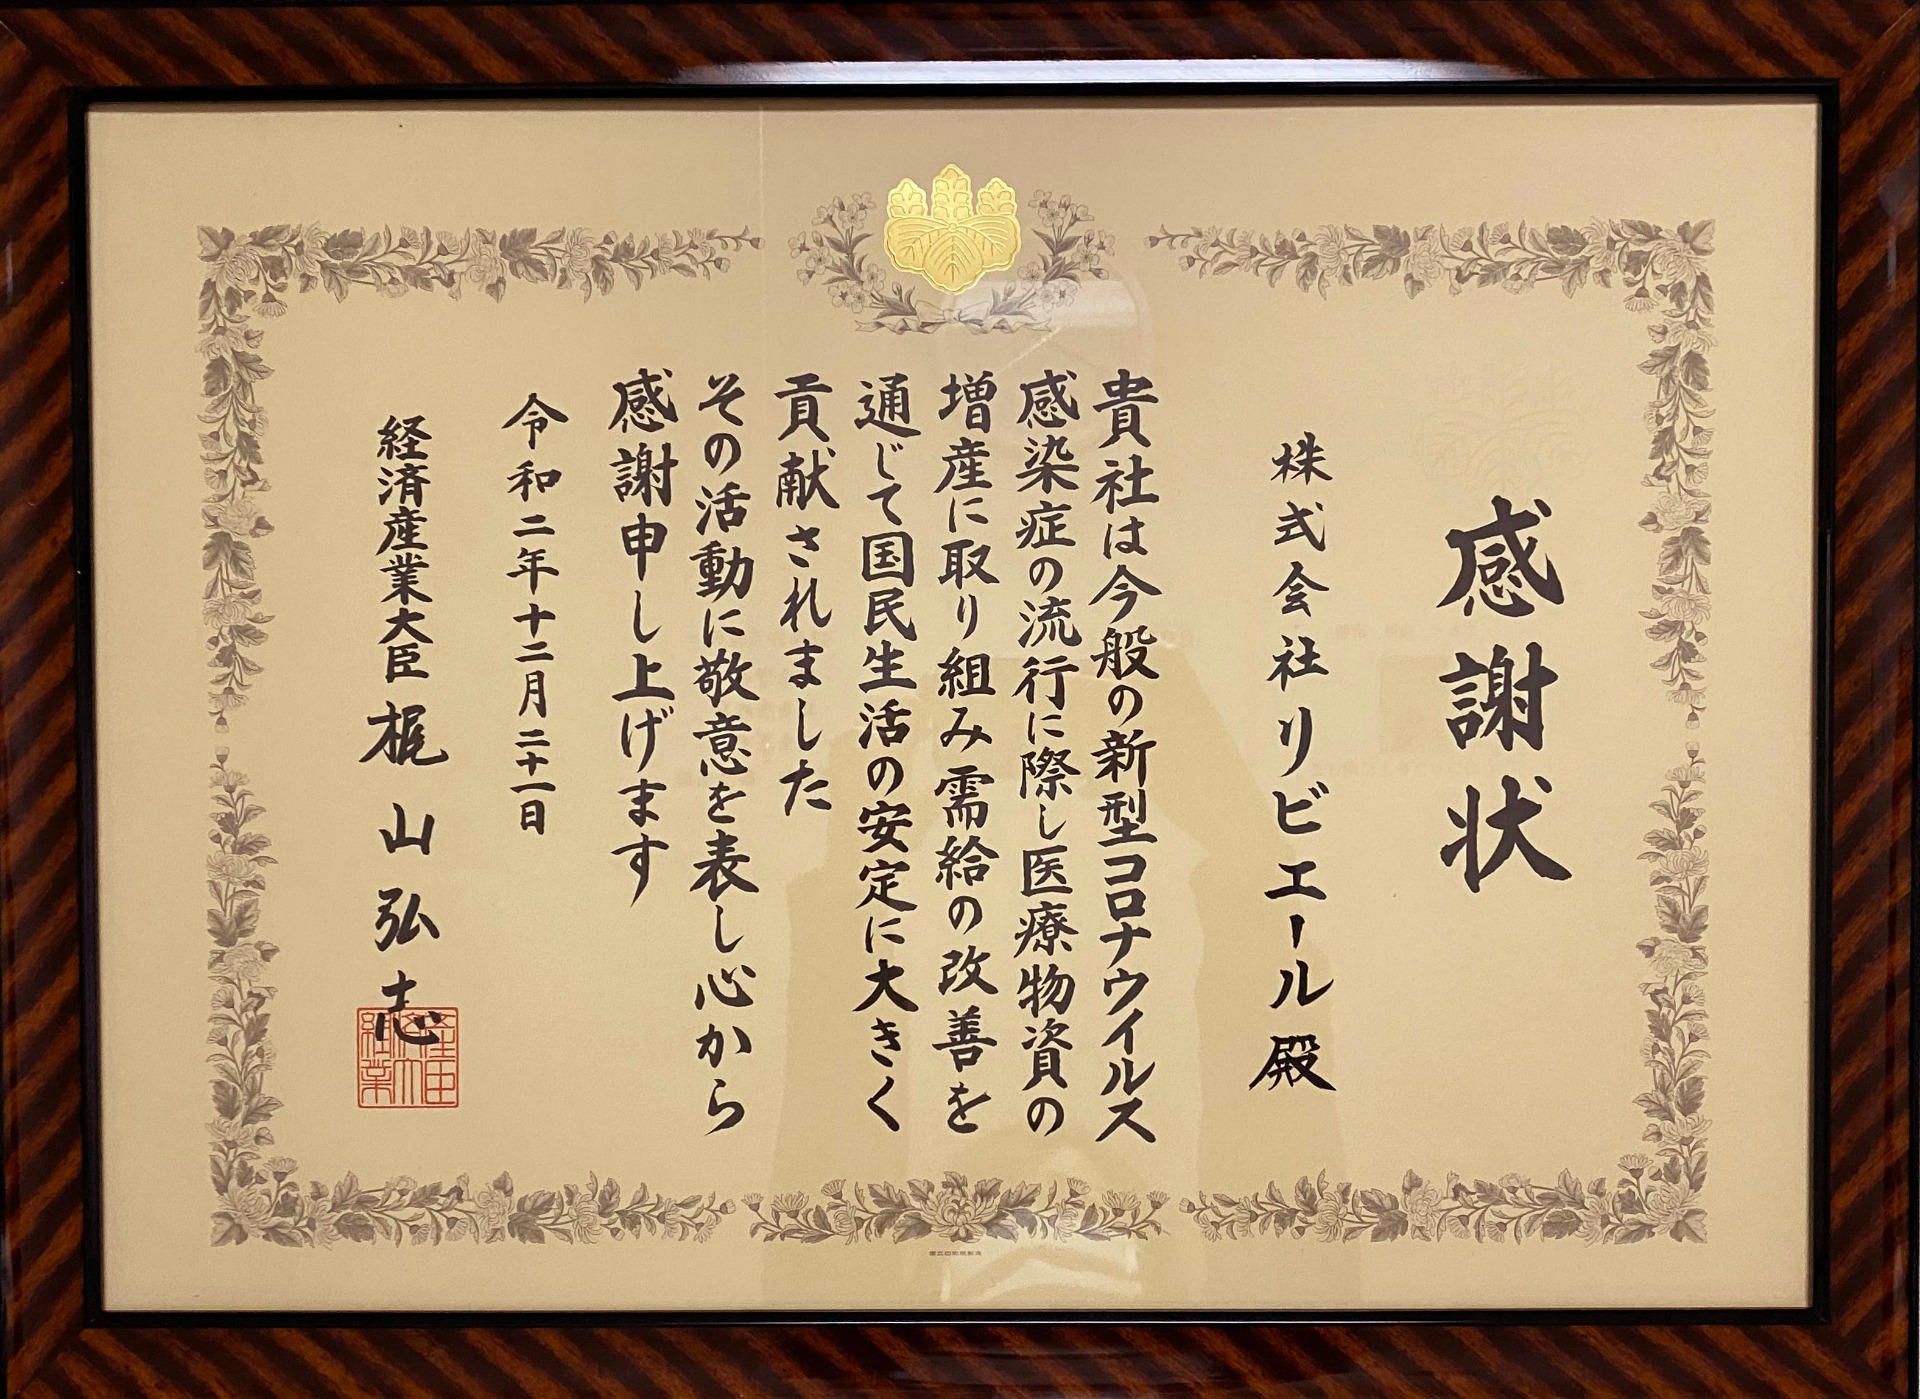 感謝状
株式会社リビエール殿
貴社は今般の新型コロナウイルス
感染症の流行に際し医療物資の
増産に取り組み需給の改善を
通じて国民生活の安定に大きく
貢献されました
その活動に敬意を表し心から
感謝申し上げます
令和二年十二月二十一日
経済産業大臣 梶山弘志